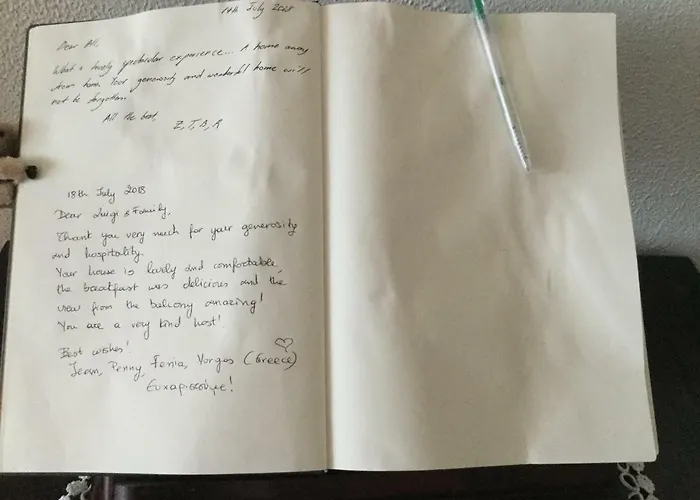 14th July 2018
Dear All,
What a lovely spectacular experience... A home away
from home. Your generosity and wonderful home will
not be forgotten.
All the best,
Z, T, B, A
18th July 2018
Dear Luigi & Family,
Thank you very much for your generosity
and hospitality.
Your house is lovely and comfortable,
the breakfast was delicious and the
view from the balcony amazing!
You are a very kind host!
Best wishes!
Jean, Penny, Fenia, Yorgos (Greece)
Ευχαριστούμε!